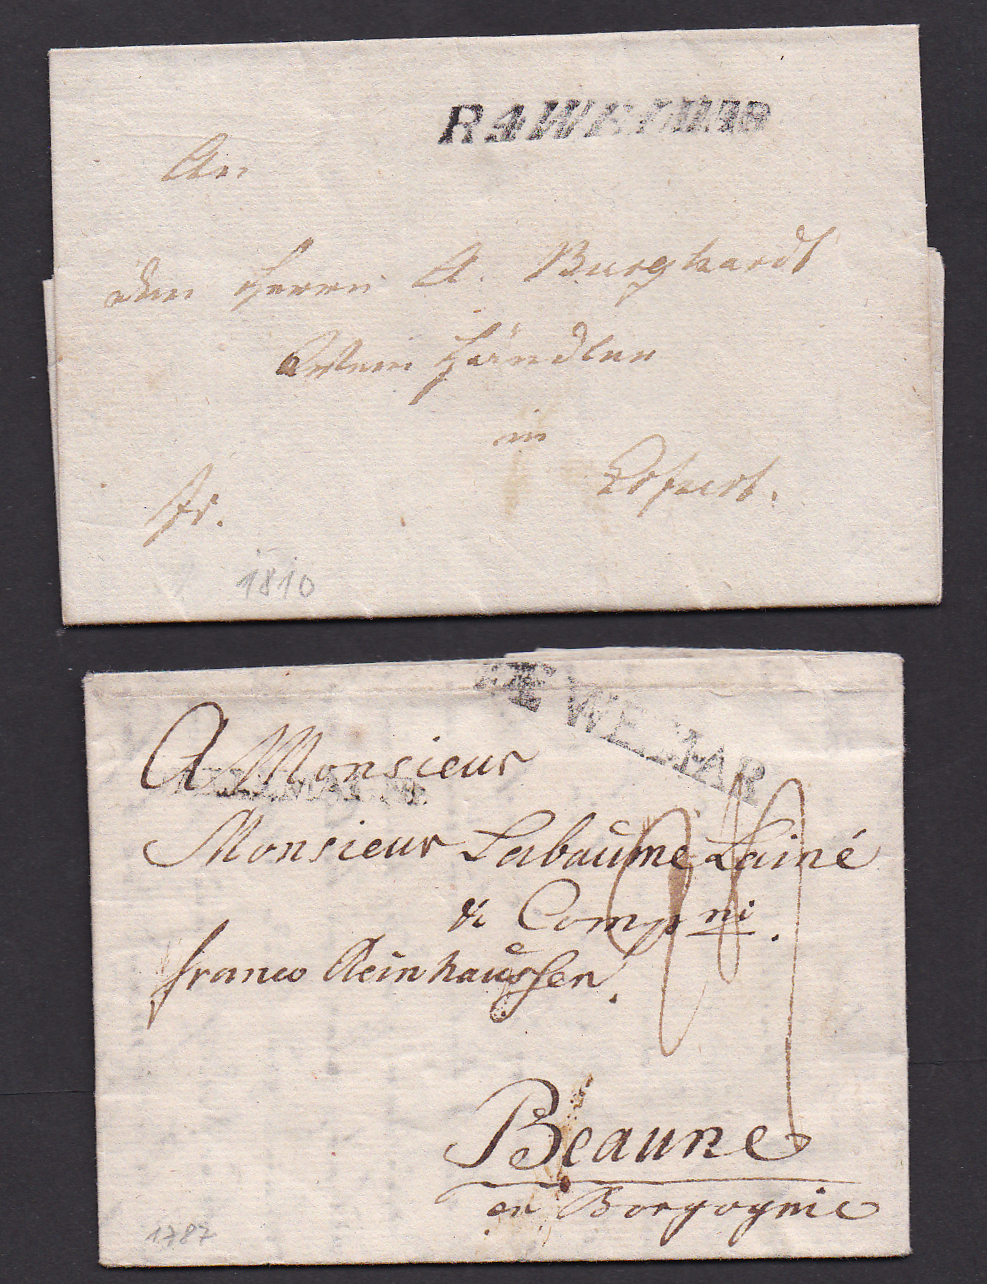 An
den Herrn A. Burghardt
Wein Händler
in
Erfurt.
fr.
1810
DE WEIMAR
A Monsieur
Monsieur Labaume Lainé
& Compnie.
franco Reinhaussen.
Beaune
en Borgognie
1787